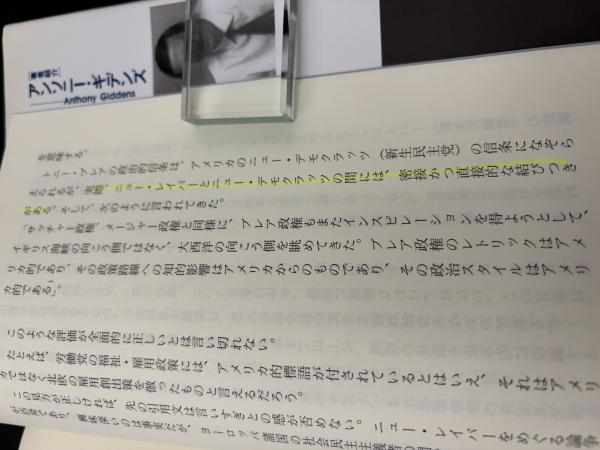 [著者紹介]
アンソニー・ギデンズ
Anthony Giddens
を意味する。
トニー・ブレアの政治的信条は、アメリカのニュー・デモクラッツ(新生民主党)の信条になぞら
えられる。実際、ニュー・レイバーとニュー・デモクラッツの間には、密接かつ直接的な結びつき
がある。そして、次のように言われてきた。
「サッチャー政権、メージャー政権と同様に、ブレア政権もまたインスピレーションを得ようとして、
イギリス海峡の向こう側ではなく、大西洋の向こう側を眺めてきた。ブレア政権のレトリックはアメ
リカ的であり、その政策路線への知的影響はアメリカからのものであり、その政治スタイルはアメリ
カ的である」。
このような評価が全面的に正しいとは言い切れない。
たとえば、労働党の福祉・雇用政策には、アメリカ的標語が付されているとはいえ、それはアメリ
カではなく北欧の雇用創出策を倣ったものと言えるだろう。
この見方が正しければ、先の引用文は言いすぎとの感が否めない。ニュー・レイバーをめぐる論争
が活発であり、興味深いのは事実だが、ヨーロッパ諸国の社会民主主義者の